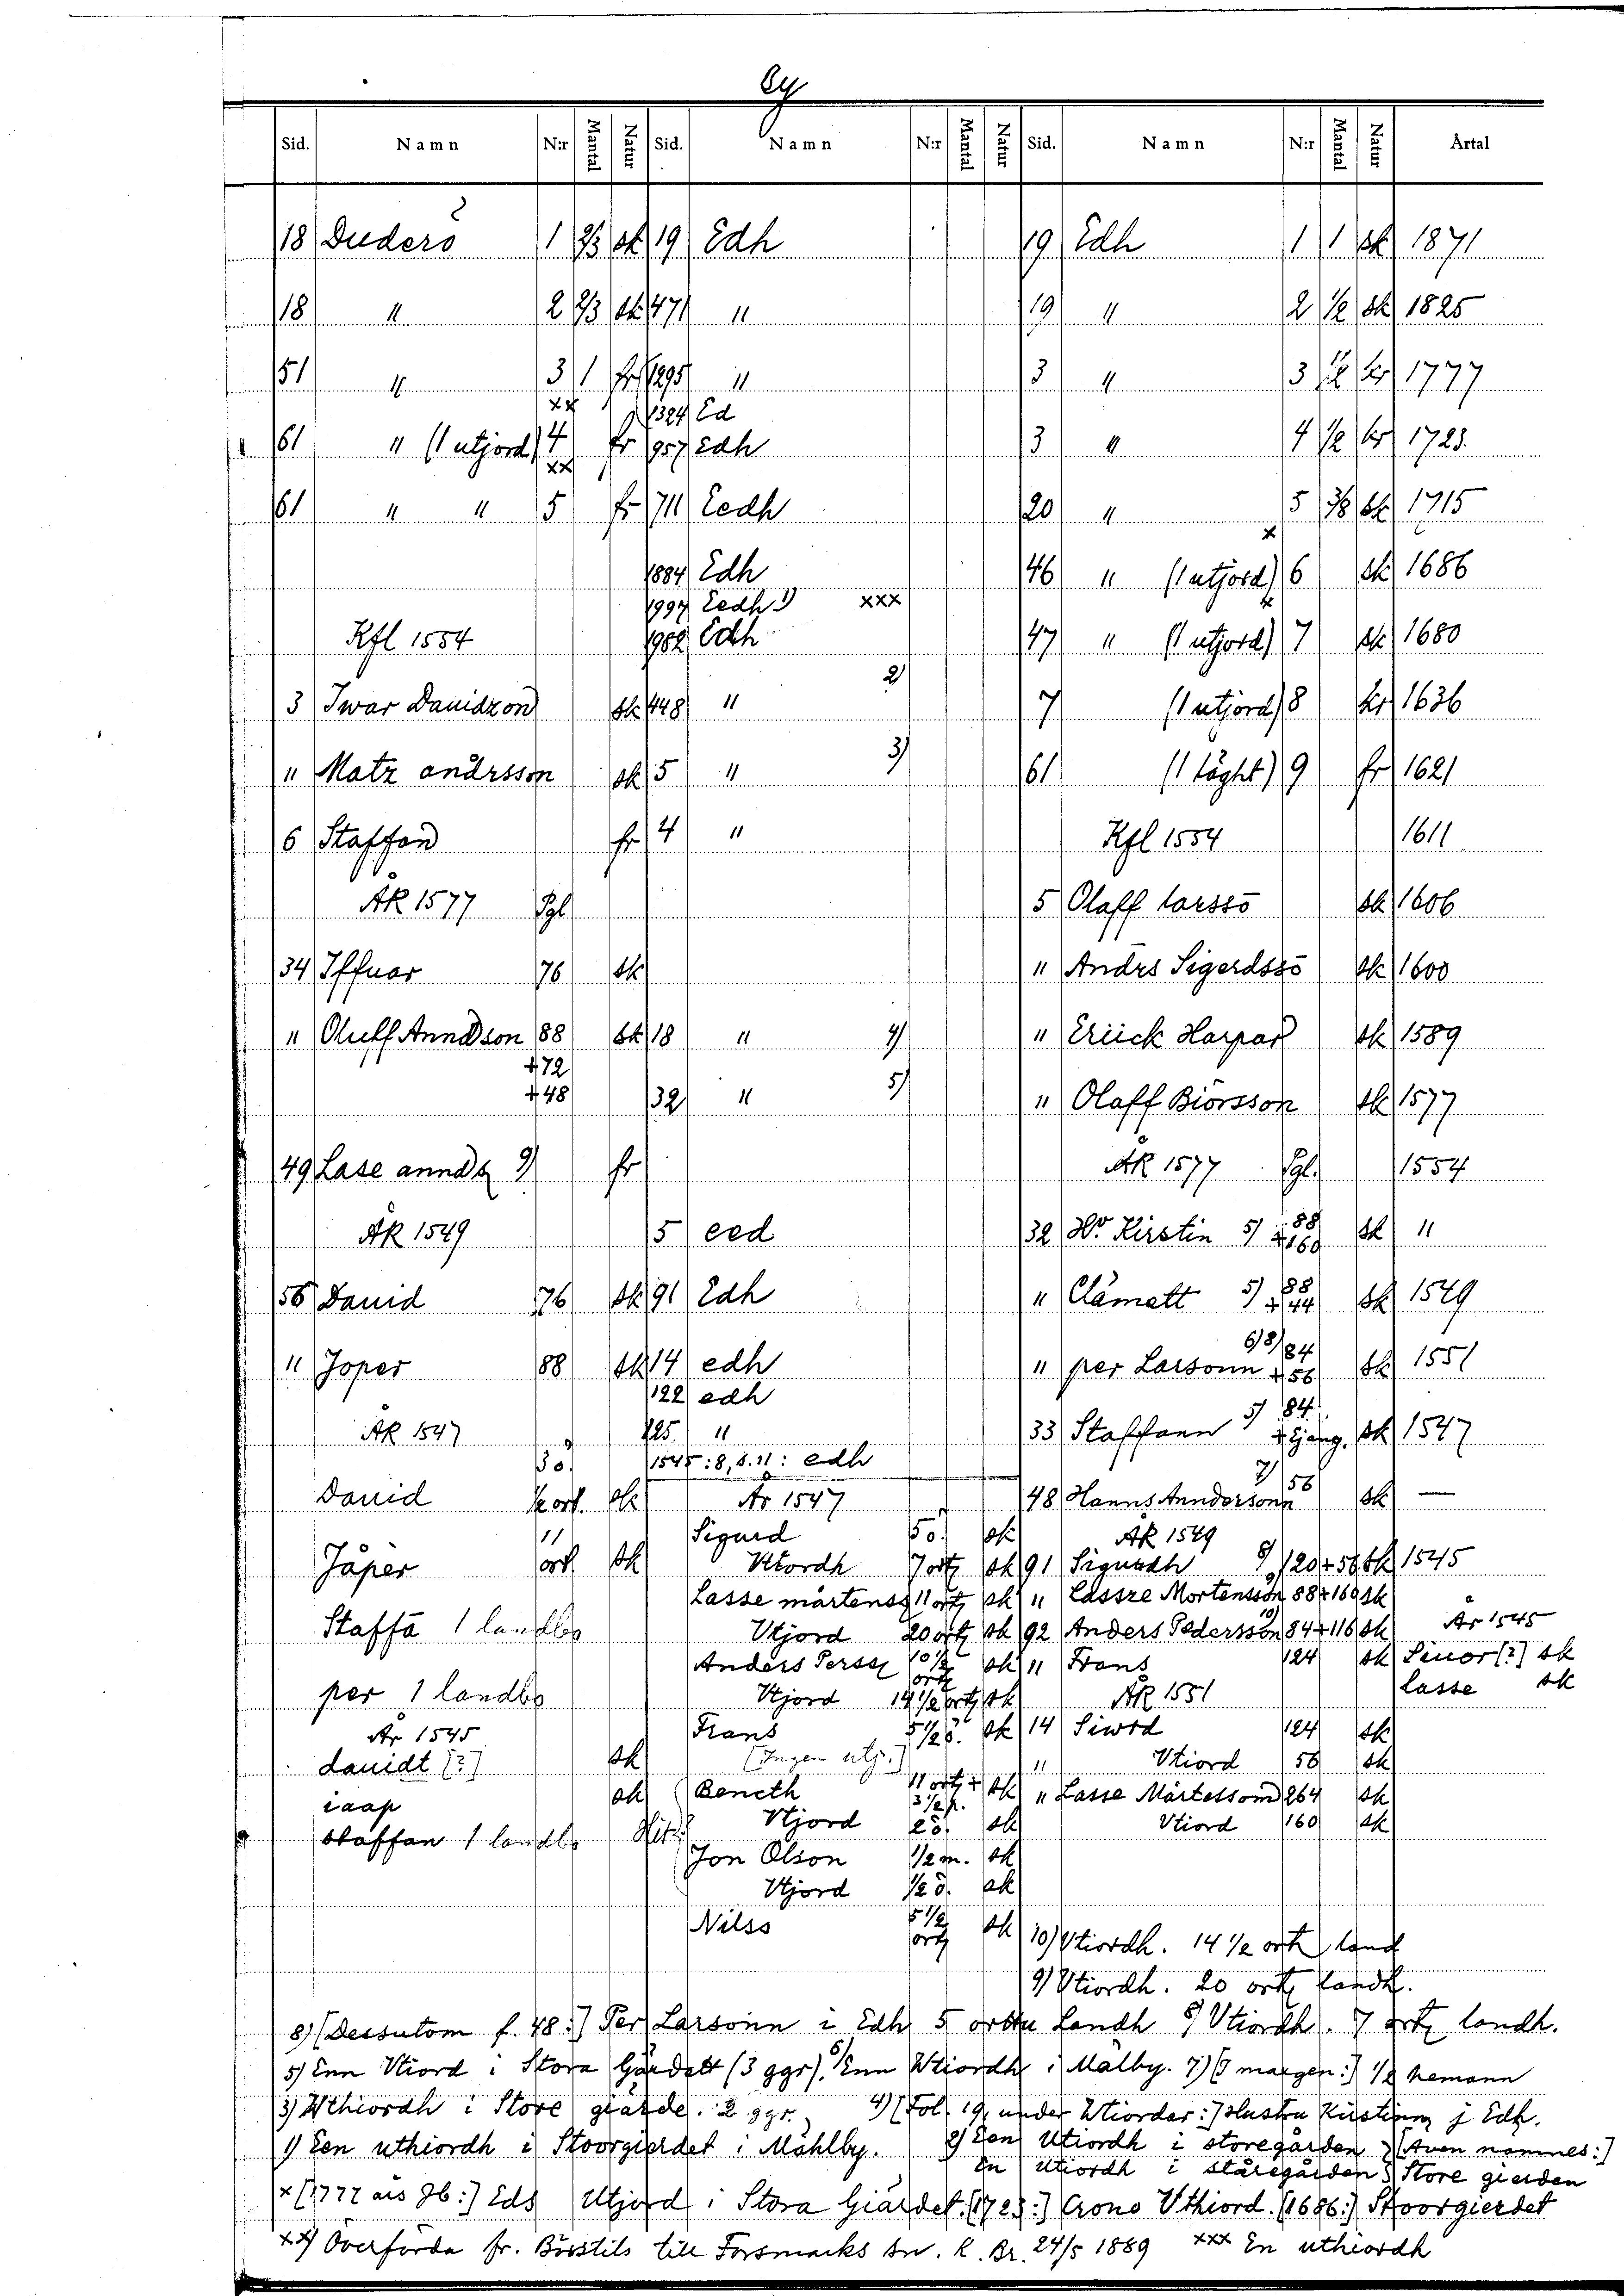 By
Sid. Namn N:r Mantal Natur Sid. Namn N:r Mantal Natur Sid. Namn N:r Mantal Natur Årtal
18 Duderö 1 2/3 sk 19 Edh 19 Edh 1 1 sk 1871
18 " 2 2/3 sk 471 " 19 " 2 1/2 sk 1825
51 " 3 1 fr 1295 " 3 " 3 1/2 kr 1777
xx 1324 Ed
61 " (1 utjord) 4 fr 957 Edh 3 " 4 1/2 kr 1723
xx
61 " " 5 fr 711 Eedh 20 " 5 3/8 sk 1715
x
1884 Edh 46 " (1 utjord) 6 sk 1686
1997 Eedh 1) xxx x
Kfl 1554 1982 Edh 47 " (1 utjord) 7 sk 1680
3 Iwar Dauidzon sk 448 " 2) 7 (1 utjord) 8 kr 1636
" Matz andrsson sk 5 " 3) 61 (1 täght) 9 fr 1621
6 Staffan fr 4 " Kfl 1554 1611
ÅR 1577 Pgl 5 Olaff larssö sk 1606
34 Iffuar 76 sk " Andrs Sigerdssö sk 1600
" Oluff Anndson 88 sk 18 " 4) " Eriick Harpar sk 1589
+72
+48 32 " 5) " Olaff Biörsson sk 1577
49 Lase annds 9) fr ÅR 1577 Pgl. 1554
ÅR 1549 5 eed 32 Hu. Kirstin 5) 88 +160 sk "
56 Dauid 76 sk 91 Edh " Clämett 5) 88 +44 sk 1549
" Joper 88 sk 14 edh " per Larsonn 6) 8) 84 +56 sk 1551
122 edh
ÅR 1547 125 " 33 Staffann 5) 84 + Ejäng. sk 1547
3 ö. 1545: 8, s. 11: edh
Dauid 1/2 ort. sk År 1547 48 Hanns Anndersonn 7) 56 sk —
11 Sigurd 5 ö. sk ÅR 1549
Jåper ort. sk Vtiordh 7 ortz sk 91 Sigurdh 8) 120+56 sk 1545
Lasse mårtenss 11 ortz sk " Lassze Mortensson 9) 88+160 sk
Staffä 1 landbo Vtjord 20 ortz sk 92 Anders Pedersson 10) 84+116 sk År 1545
Anders Perss 10 1/2 ortz sk " Frans 124 sk Siuor [?] sk
per 1 landbo Vtjord 14 1/2 ortz sk ÅR 1551 lasse sk
År 1545 Frans 5 1/2 ö. sk 14 Siwrd 124 sk
dauidt [?] sk [Ingen utj.] " Vtiord 56 sk
iaap sk Bencth 11 ortz + 3 1/2 p. sk " Lasse Mårtessom 264 sk
staffan 1 landbo Vtjord 2 ö. sk Vtiord 160 sk
Jon Olson 1/2 m. sk
Vtjord 1/2 ö. sk
Nilss 5 1/2 ortz sk 10) Vtiordh. 14 1/2 ortz land
9) Vtiordh. 20 ortz landh.
8) [Dessutom f. 48:] Per Larsonn i Edh 5 orttu Landh 8) Vtiordh. 7 ortz landh.
5) Enn Vtiord i Stora Gärdett (3 ggr). 6) Enn Wtiordh i Malby. 7) [I margen:] 1/2 nemann
3) Wthiordh i Store giärde. 2 ggr. 4) [Fol. 19, under Wtiorder:] Hustru Kirstinn j Edh.
1) Een uthiordh i Stoorgierdet i Mählby. 2) Een Utiordh i storegården [Även nämnes:]
En Utiordh iståregården Store gierden
x [1777 års Jb:] Eds Utjord i Stora Giärdet. [1723:] Crono Uthiord. [1686:] Stoorgierdet
xx) Överförda fr. Börstils till Forsmarks sn. K. Br. 24/5 1889 xxx En uthiordh